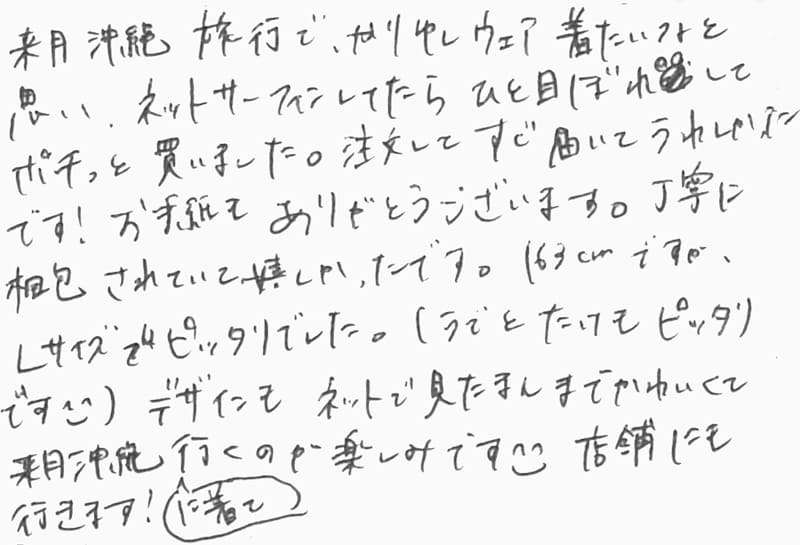 来月沖縄旅行で、かりゆしウェア着たいなと
思い、ネットサーフィンしてたらひと目ぼれして
ポチっと買いました。注文してすぐ届いてうれしかった
です!お手紙もありがとうございます。丁寧に
梱包されていて嬉しかったです。163cmですが、
Lサイズでピッタリでした。(うでとたけもピッタリ
です)デザインもネットで見たまんまでかわいくて
来月沖縄行くのが楽しみです 店舗にも
行きます!に着て